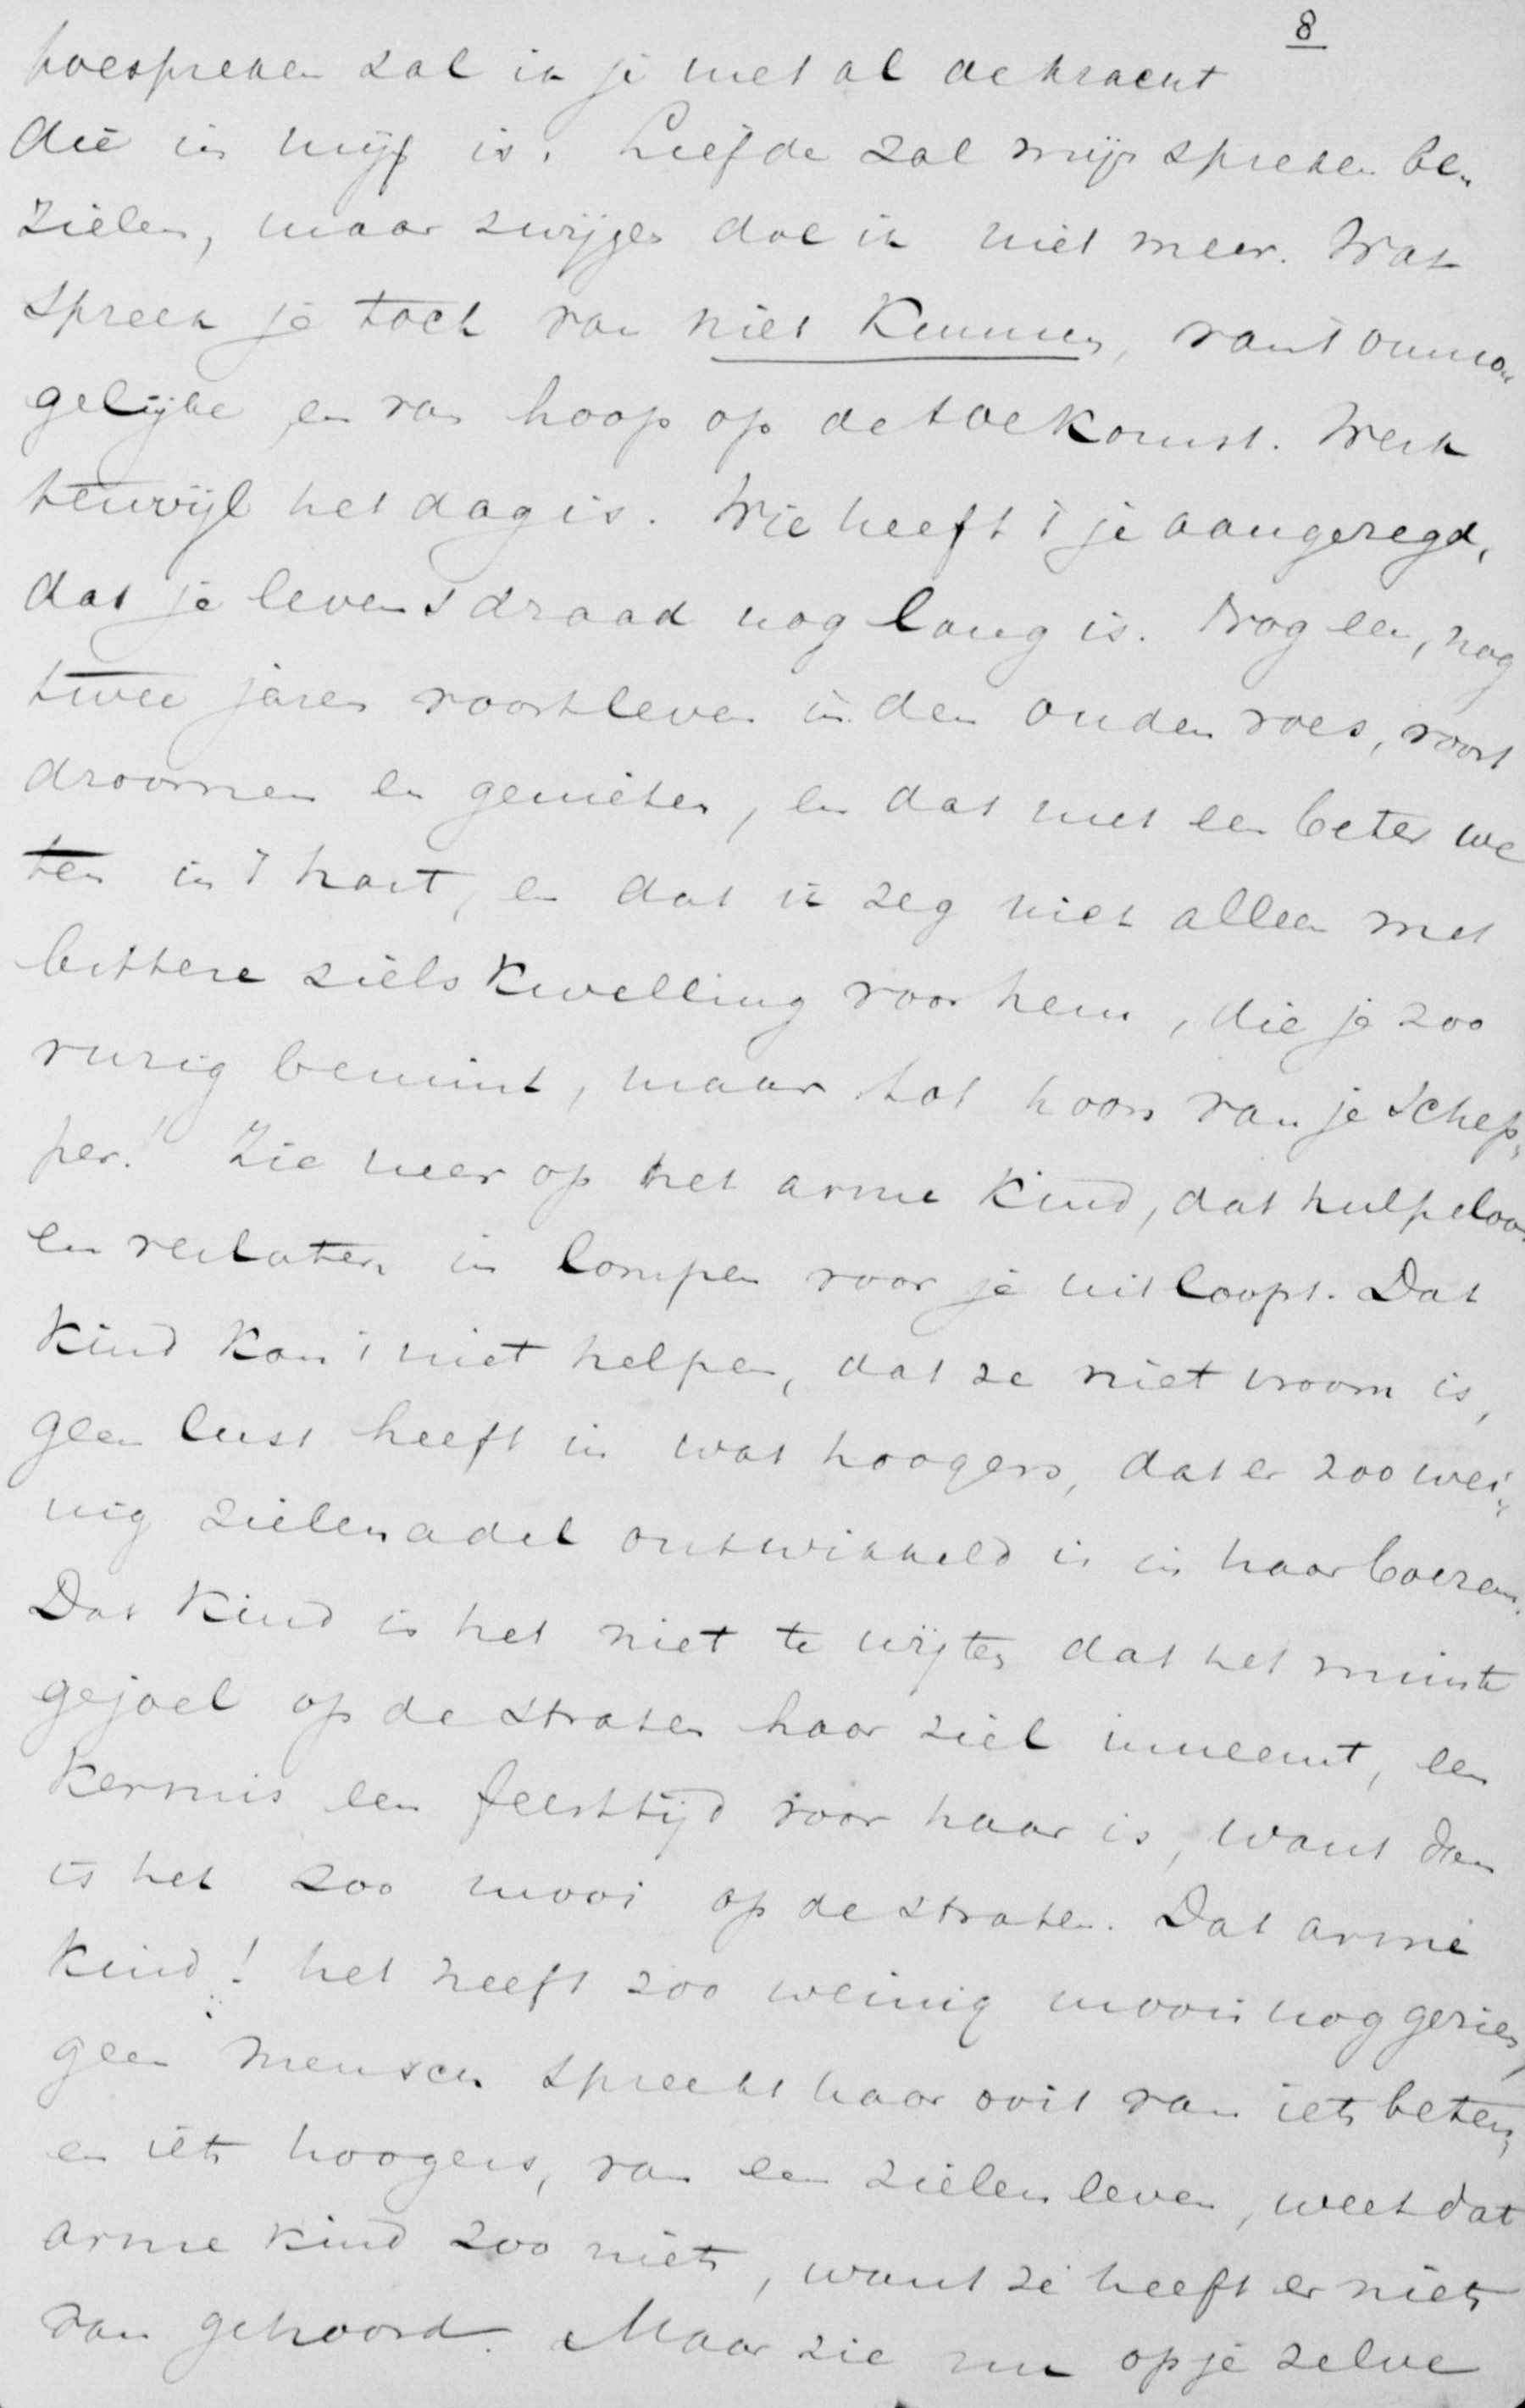 8
toespreken zal ik je met al de kracht
die in mij is. Liefde zal mijn spreken be„
zielen, maar zwijgen doe ik niet meer. Wat
spreek je toch van niet kunnen, van 't onmo„
gelijke en van hoop op de toekomst. Werk
terwijl het dag is. Wie heeft 't je aangezegd,
dat je levensdraad nog lang is. Nog een, nog
twee jaren voortleven in den ouden roes, voort
droomen en genieten, en dat met een beter we
ten in 't hart, en dat ik zeg niet alleen met
bittere zielskwelling voor hem, die je zoo
vurig bemint, maar tot hoon van je Schep„
per! Zie neer op het arme kind, dat hulpeloos
en verlaten in lompen voor je uitloopt. Dat
kind kan 't niet helpen, dat ze niet vroom is,
geen lust heeft in wat hoogers, dat er zoo wei„
nig zielenadel ontwikkeld is in haar boezem.
Dat kind is het niet te wijten dat het minste
gejoel op de straten haar ziel inneemt, een
kermis een feesttijd voor haar is, want dan
is het zoo mooi op de straten. Dat arme
kind! het heeft zoo weinig moois nog gezien,
geen mensch spreekt haar ooit van iets beters,
en iets hoogers, van een zielenleven, weet dat
arme kind zoo niets, want ze heeft er niets
van gehoord. Maar zie nu op je zelve